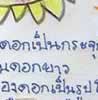 ดอกเป็นกระจุก
ดอกยาว
ดอกเป็นรูป